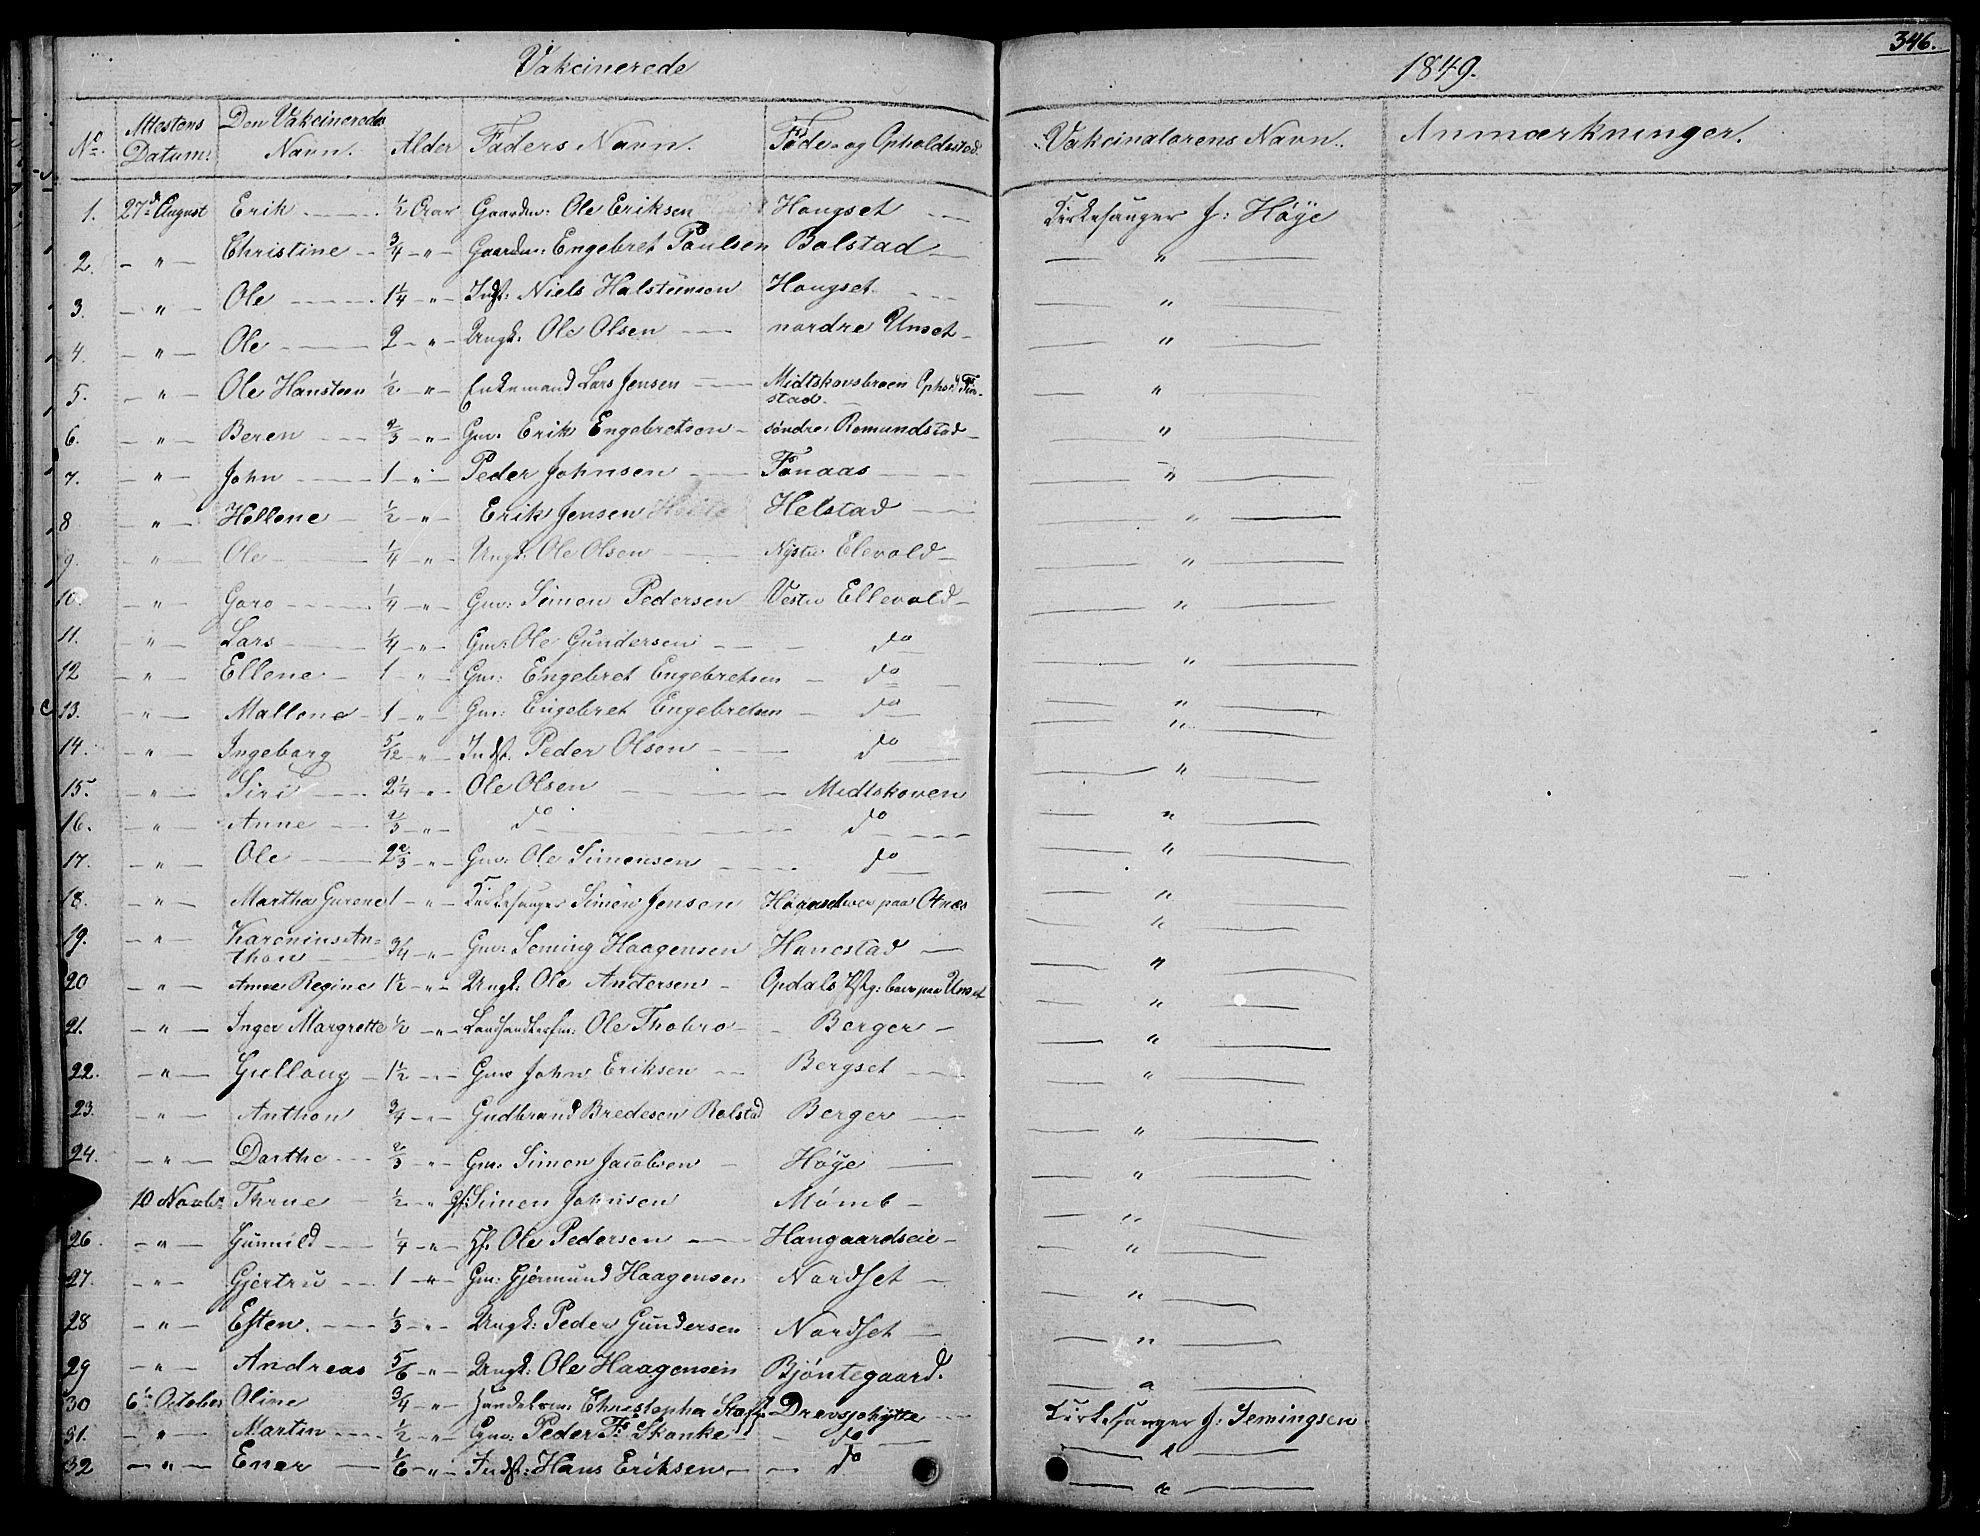 346.
Vakcinerede 1849.
No. Attestens Datum: Den Vakcineredes Navn. Alder Faders Navn. Føde- og Opholdssted. Vakcinatorens Navn. Anmærkninger.
1. 27de August Erik ½ Aar Gaardm: Ole Eriksen Hougset Kirkesanger J: Høye
2. " Christine ¾ " Gaardm: Engebret Paulsen Bolstad "
3. " Ole 1¼ " Indst: Niels Halsteinsen Hougset "
4. " Ole 2 " Ungk: Ole Olsen nordre Unset "
5. " Ole Hansteen ½ " Enkemand Lars Jensen Midtskovsbroen Ophold Finstad "
6. " Beren ⅔ " Gm: Erik Engebretsen søndre Romundstad "
7. " John 1 " Peder Johnsen Fonaas "
8 " Hellene ½ " Erik Jensen Helstad "
9. " Ole ¼ " Ungk: Ole Olsen Nystu Elevold "
10. " Goro ¼ " Gm: Simen Pedersen Vestu Ellevold "
11. " Lars ¼ " Gm: Ole Gundersen do
12 " Ellene 1 " Gm: Engebret Engebretsen do "
13. " Mallene 1 " Gm: Engebret Engebretsen do "
14. " Ingeborg 5/12 " Indst. Peder Olsen do "
15. " Siri 2¼ " Ole Olsen Midtskoven "
16. " Anne ⅔ " do do "
17. " Ole 2⅔ " Gm: Ole Simensen do "
18. " Martha Gurene 1 " Kirkesanger Simen Jensen paa Otnes "
19. " Karenius Anthon ¾ " Gm: Seming Haagensen Hanestad "
20 " Anne Regine 1½ " Ungk: Ole Andersen Opdals Pstg: boer paa Unset "
21. " Inger Margrette ½ " Landhandlerfm: Ole Thobro Berger "
22. " Gullaug 1½ " Gm John Eriksen Bergset "
23. " Anthon ¾ " Gudbrand Bredesen Bolstad Berger "
24. " Dorthe ⅔ " Gm: Simen Jacobsen Høye "
10 Novbr Thrue ½ " Hf: Simen Johnsen Mømb "
26 " Gunnild ¼ " Hf. Ole Pedersen Hangaardseie "
27. " Gjertru 1 " Gm: Gjermund Haagensen Nordset "
28 " Esten ⅓ " Ungk: Peder Gundersen Nordset "
29 " Andreas ⅚ " Ungk: Ole Haagensen Bjøntegaard. "
30 6te October Oline ¾ " Handelsm: Christopher Drevsjohytte Kirkesanger J: Semingsen
31. " Martin ½ " Gm: Peder Fr Skanke do "
32 " Ener ⅙ " Indst: Hans Eriksen do "